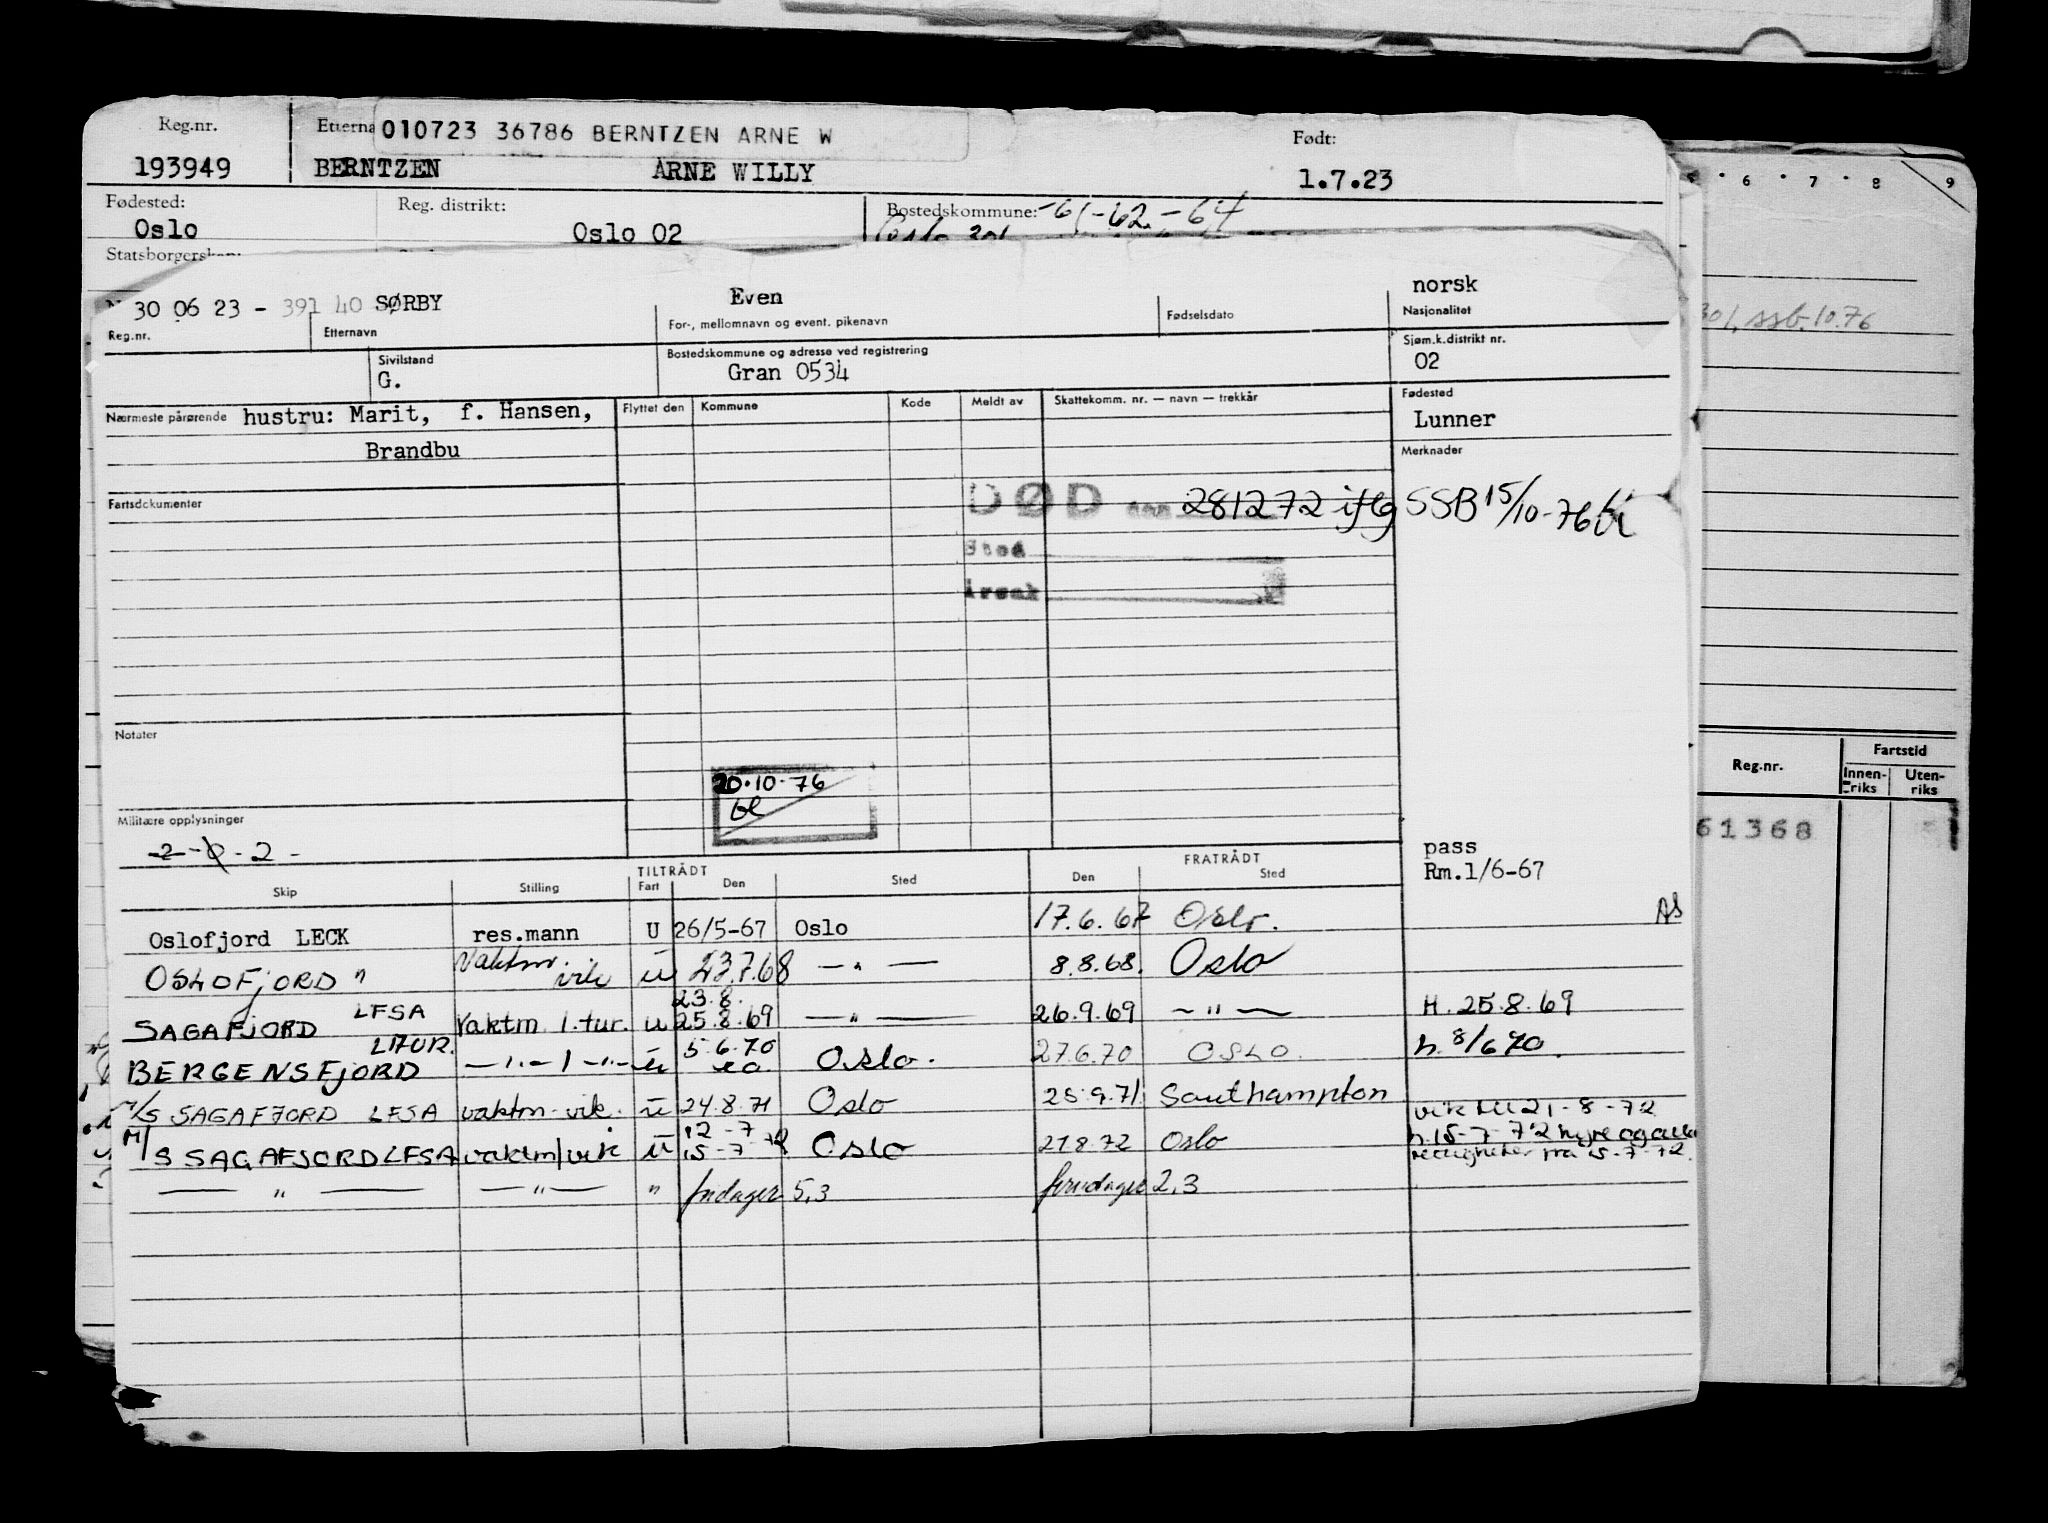 Reg.nr. Etterna 010723 36786 BERNTZEN ARNE W Født:
193949 BERNTZEN ARNE WILLY 1.7.23
Fødested: Reg. distrikt: Bostedskommune: -61-62.-64
Oslo Oslo 02 Oslo 301
Statsborgerskap:
30 06 23 - 391 40 SØRBY Even norsk
Reg.nr. Etternavn For-, mellomnavn og event. pikenavn Fødselsdato Nasjonalitet
Sivilstand Bostedskommune og adresse ved registrering Sjøm.k.distrikt nr.
G. Gran 0534 02
Nærmeste pårørende hustru: Marit, f. Hansen, Flyttet den Kommune Kode Meldt av Skattekomm. nr. — navn — trekkår Fødested
Lunner
Brandbu Merknader
Fartsdokumenter DØD den 281272 iflg SSB 15/10-76
Sted
Årsak
Notater
20.10.76
Militære opplysninger
-2-0-2-
pass
Rm.1/6-67
TILTRÅDT FRATRÅDT
Skip Stilling Fart Den Sted Den Sted
Oslofjord LECK res.mann U 26/5-67 Oslo 17.6.67 Oslo. AS
OSLOFJORD " Vaktm. vik u 23.7.68 — " — 8.8.68. Oslo
23.8.
SAGAFJORD LFSA Vaktm 1.tur. u 25.8.69 — " — 26.9.69 — " — H. 25.8.69
BERGENSFJORD — " — 1 — " — u 5.6.70 Oslo. 27.6.70 OSLO. h. 8/6 70.
M/S SAGAFJORD LFSA vaktm. vik. u 24.8.71 Oslo 25.9.71. Southampton
vik til 21-8-72
12-7
M/S SAGAFJORD LFSA vaktm/vik u 15-7-72 Oslo 21.8.72 Oslo h.15-7-72 hyre og alle
rettigheter fra 15-7-72.
— " — — " — " fridager 5,3 feriedager 2,3
6 7 8 9
301, ssb.10.76
Reg.nr. Fartstid
Innen-riks Uten-riks
61368